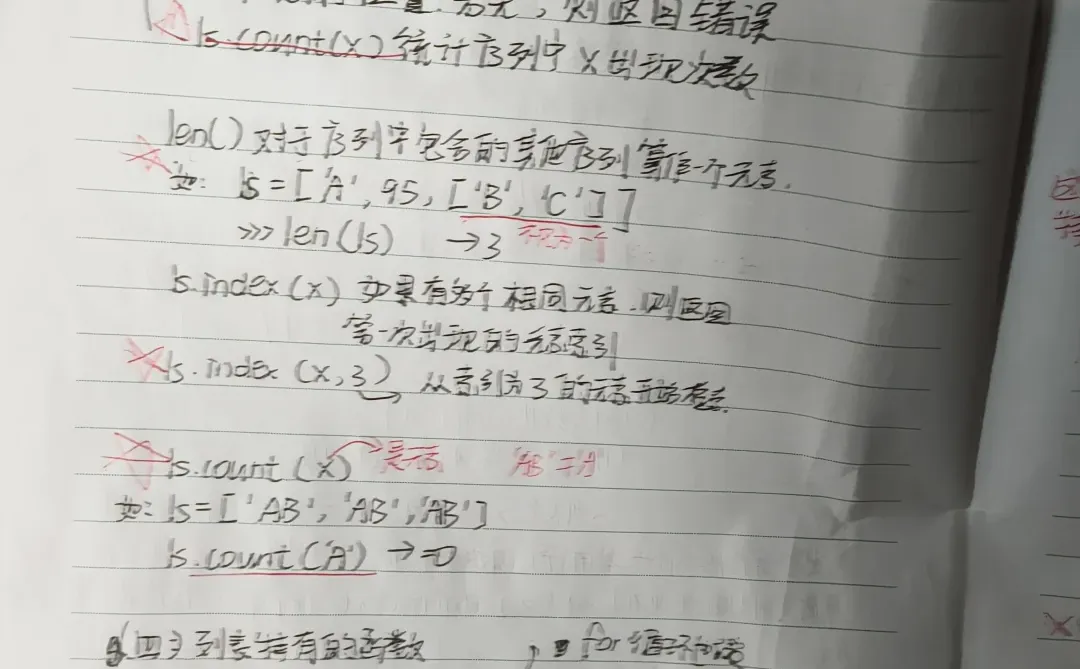 为元, 则返回错误
ls.count(x) 统计序列中 x 出现次数
len() 对于序列中包含的其他序列算作一个元素.
如: ls = ['A', 95, ['B', 'C']]
>>> len(ls) → 3 视为一个
ls.index(x) 如果有多个相同元素. 则返回
第一次出现的元素索引
ls.index (x, 3) 从索引为3的元素开始检索.
ls.count (x) 是否 'AB' = 'A'
如: ls = ['AB', 'AB', 'AB']
ls.count('A') → =0
(四) 列表特有的函数 , for 循环